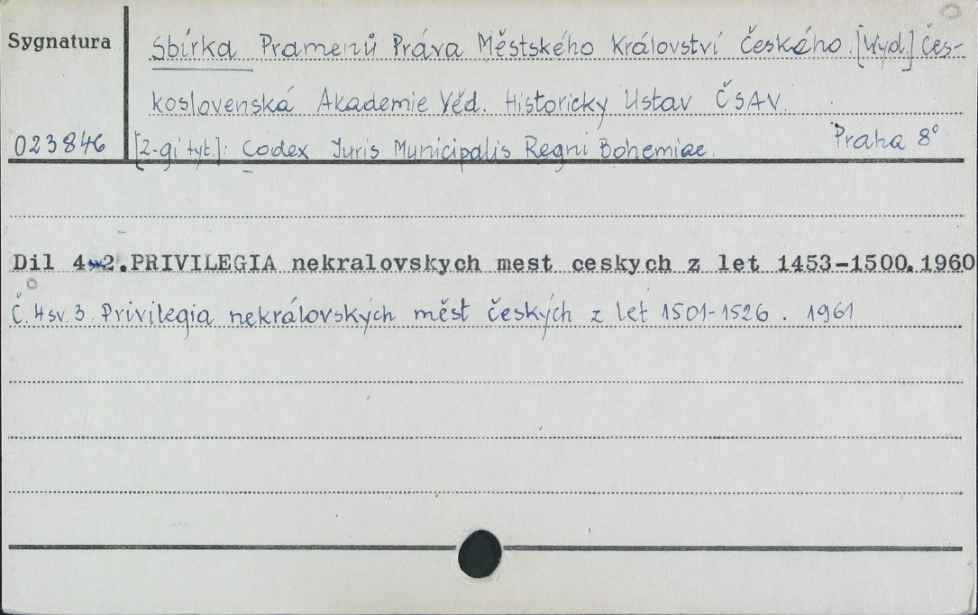 Sygnatura
Sbírka Pramenů Práva Městského Království Českého. [Wyd.] Čes-
koslovenská Akademie Věd. Historicky Ustav ČSAV.
023846 [2-gi tyt.]: Codex Juris Municipalis Regni Bohemiae. Praha 8°
Dil 4 2.PRIVILEGIA nekralovskych mest ceskych z let 1453-1500.1960
Č. 4 sv. 3. Privilegia nekrálovských měst českých z let 1501-1526. 1961